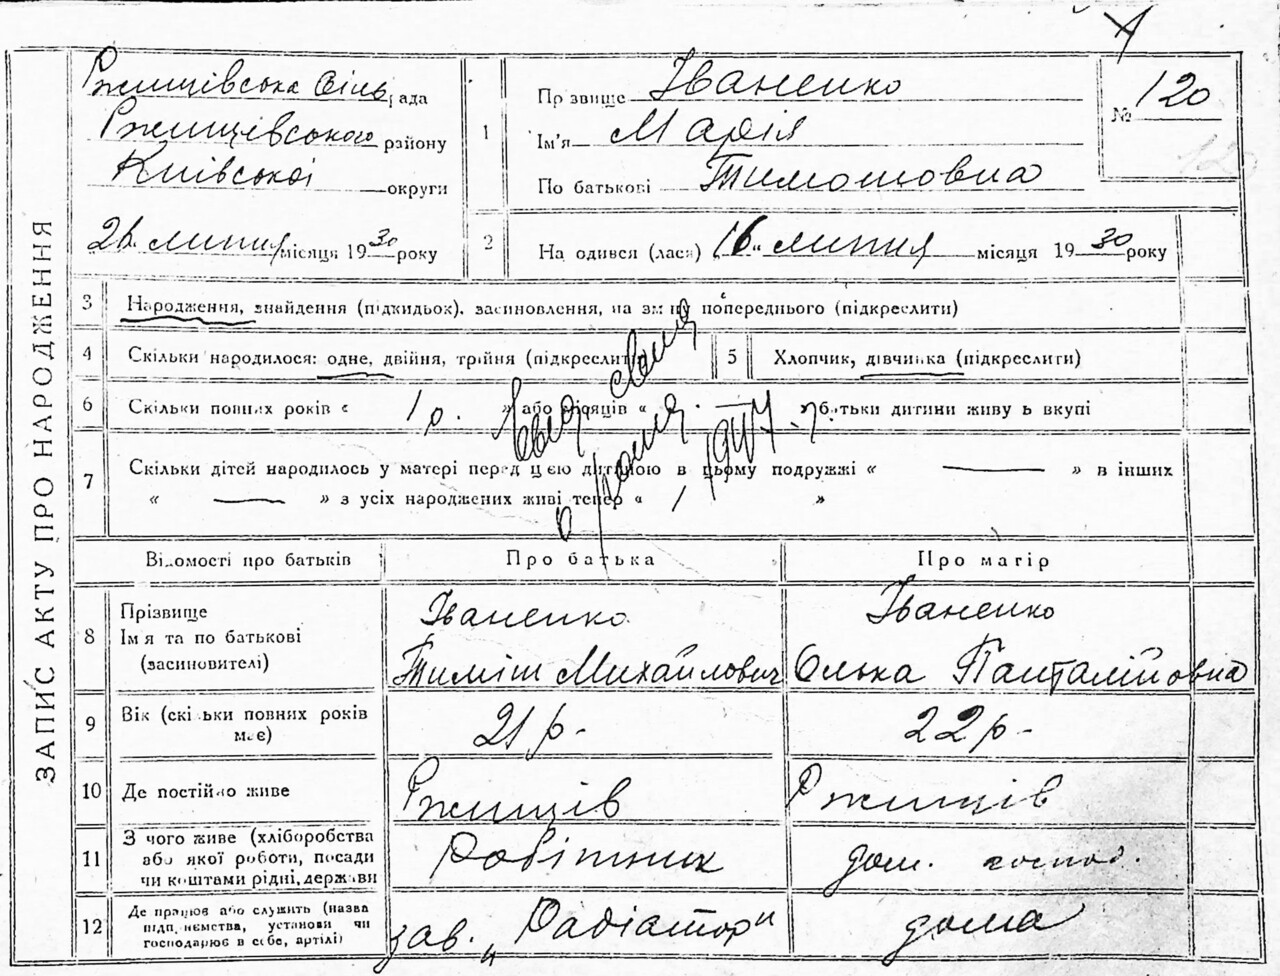 ЗАПИС АКТУ ПРО НАРОДЖЕННЯ
Ржищівська Сіль рада
Ржищівського району
Київської округи
26 липня місяця 1930 року
1 Прізвище Іваненко
Ім'я Марія
По батькові Тимошовна
№ 120
2 На одився (лася) 16 " липня місяця 1930 року
3 Народження, знайдення (підкидьок), засиновлення, на зміну попереднього (підкреслити)
4 Скільки народилося: одне, двійня, трійня (підкреслити)
5 Хлопчик, дівчинка (підкреслити)
6 Скільки повних років « 1 р. » або місяців « — » батьки дитини живуть вкупі
7 Скільки дітей народилось у матері перед цією дитиною в цьому подружжі « — » в інших
« — » з усіх народжених живі тепер « »
1947 р.
Відомості про батьків Про батька Про матір
8 Прізвище
Ім'я та по батькові
(засиновителі)
Іваненко
Тиміш Михайлович
Іваненко
Олька Панталіїмовна
9 Вік (скільки повних років має) 21 р. 22 р.
10 Де постійно живе Ржищів Ржищів
11 З чого живе (хліборобства
або якої роботи, посади
чи коштами рідні, держави
Робітник дом. господ.
12 Де працює або служить (назва
підприємства, установи чи
господарює в себе, артілі)
зав. „Радіатор" дома